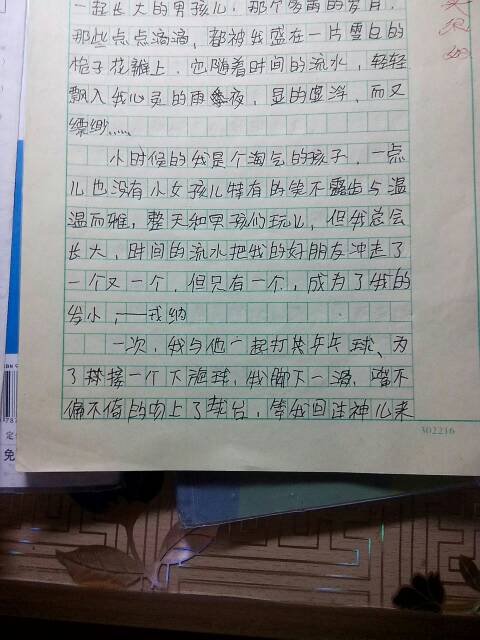 一起长大的男孩儿，那个多雨的岁月，
那些点点滴滴，都被我盛在一片雪白的
栀子花瓣上，它随着时间的流水，轻轻
飘入我心灵的雨季夜，显的虚浮，而又
缥缈……
小时候的我是个淘气的孩子，一点
儿也没有小女孩儿特有的笑不露齿与温
温而雅，整天和男孩们玩儿，但我总会
长大，时间的流水把我的好朋友冲走了
一个又一个，但只有一个，成为了我的
发小，——戎纳
一次，我与他一起打乒乓球、为
了拼接一个下旋球，我脚下一滑，嘴不
偏不倚的吻上了球台，等我回过神儿来
302216